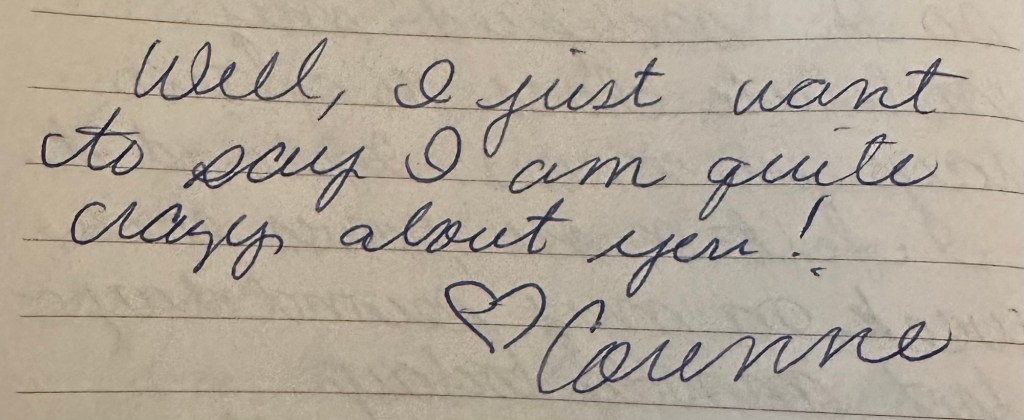 Well, I just want
to say I am quite
crazy about you!
♡ Corinne